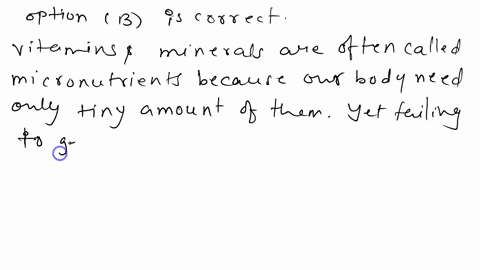 option (B) is correct.
vitamins & minerals are often called
micronutrients because our body need
only tiny amount of them. Yet failing
to g